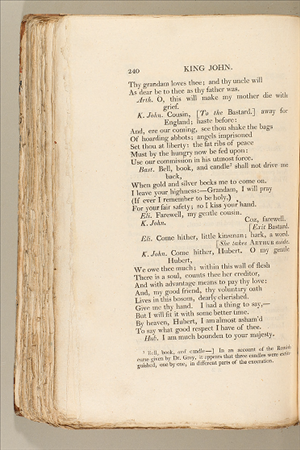 240 KING JOHN.
Thy grandam loves thee; and thy uncle will
As dear be to thee as thy father was.
Arth. O, this will make my mother die with
grief.
K. John. Cousin, [To the Bastard.] away for
England; haste before:
And, ere our coming, see thou shake the bags
Of hoarding abbots; angels imprisoned
Set thou at liberty: the fat ribs of peace
Must by the hungry now be fed upon:
Use our commission in his utmost force.
Bast. Bell, book, and candle² shall not drive me
back,
When gold and silver becks me to come on.
I leave your highness:—Grandam, I will pray
(If ever I remember to be holy,)
For your fair safety; so I kiss your hand.
Eli. Farewell, my gentle cousin.
K. John. Coz, farewell.
[Exit Bastard.
Eli. Come hither, little kinsman; hark, a word.
[She takes ARTHUR aside.
K. John. Come hither, Hubert. O my gentle
Hubert,
We owe thee much; within this wall of flesh
There is a soul, counts thee her creditor,
And with advantage means to pay thy love:
And, my good friend, thy voluntary oath
Lives in this bosom, dearly cherished.
Give me thy hand. I had a thing to say,—
But I will fit it with some better time.
By heaven, Hubert, I am almost asham'd
To say what good respect I have of thee.
Hub. I am much bounden to your majesty.
² Bell, book, and candle—] In an account of the Romish
curse given by Dr. Grey, it appears that three candles were extin-
guished, one by one, in different parts of the execration.